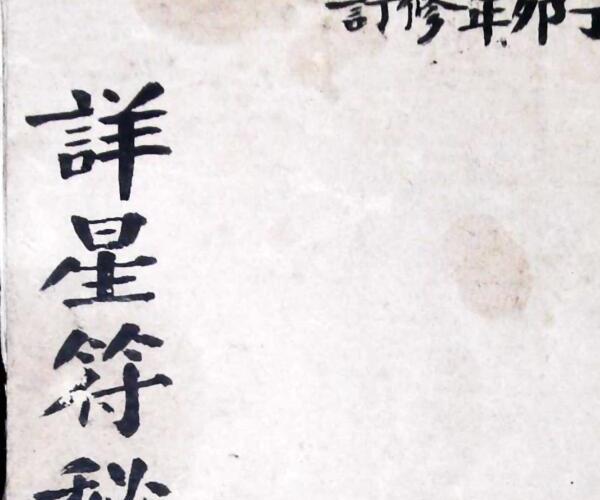 丁卯年修訂
詳星符秘